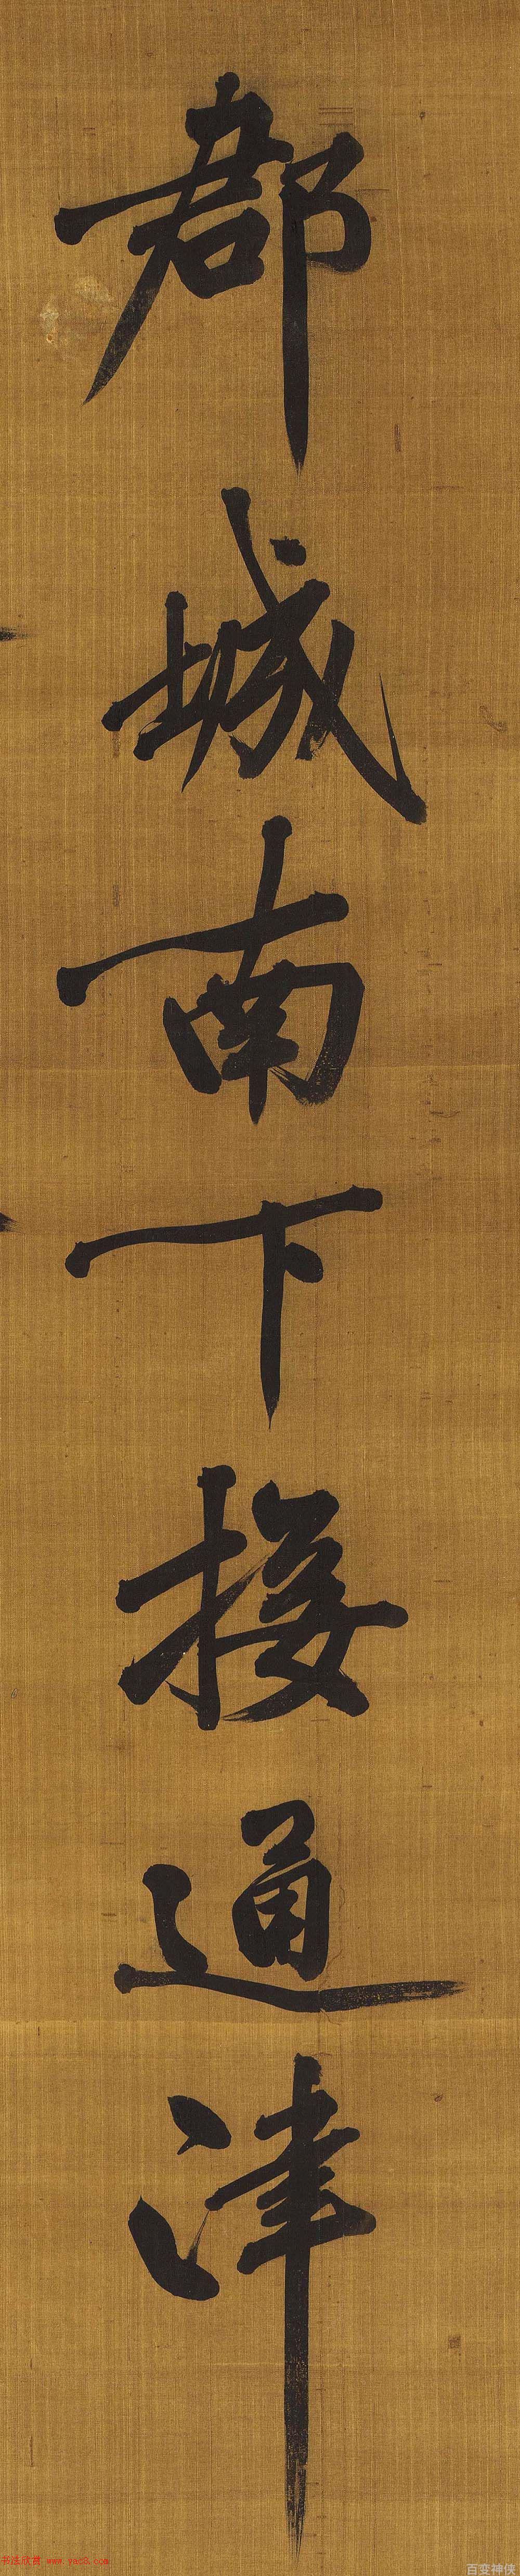 都城南下接通津
书法欣賞 www.yac8.com
百变神侠